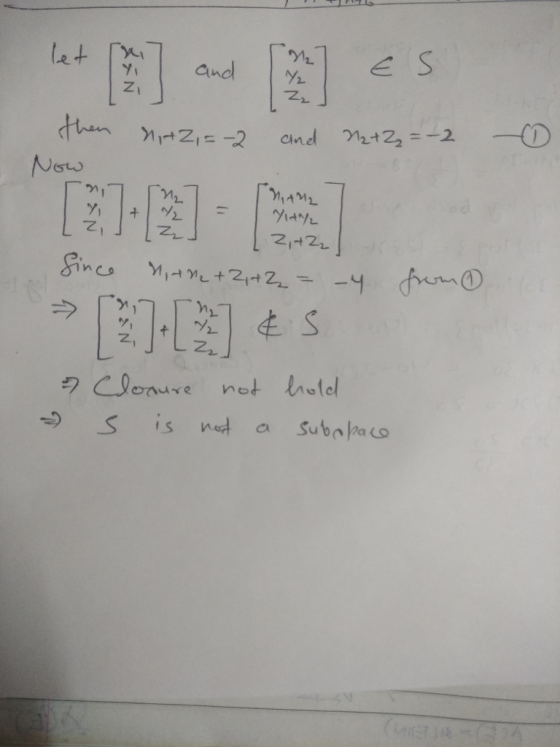 let [x₁ y₁ z₁] and [x₂ y₂ z₂] ∈ S
then x₁+z₁=-2 and x₂+z₂=-2 —①
Now
[x₁ y₁ z₁] + [x₂ y₂ z₂] = [x₁+x₂ y₁+y₂ z₁+z₂]
Since x₁+x₂+z₁+z₂ = -4 from①
⇒ [x₁ y₁ z₁] + [x₂ y₂ z₂] ∉ S
⇒ Closure not hold
⇒ S is not a subspace